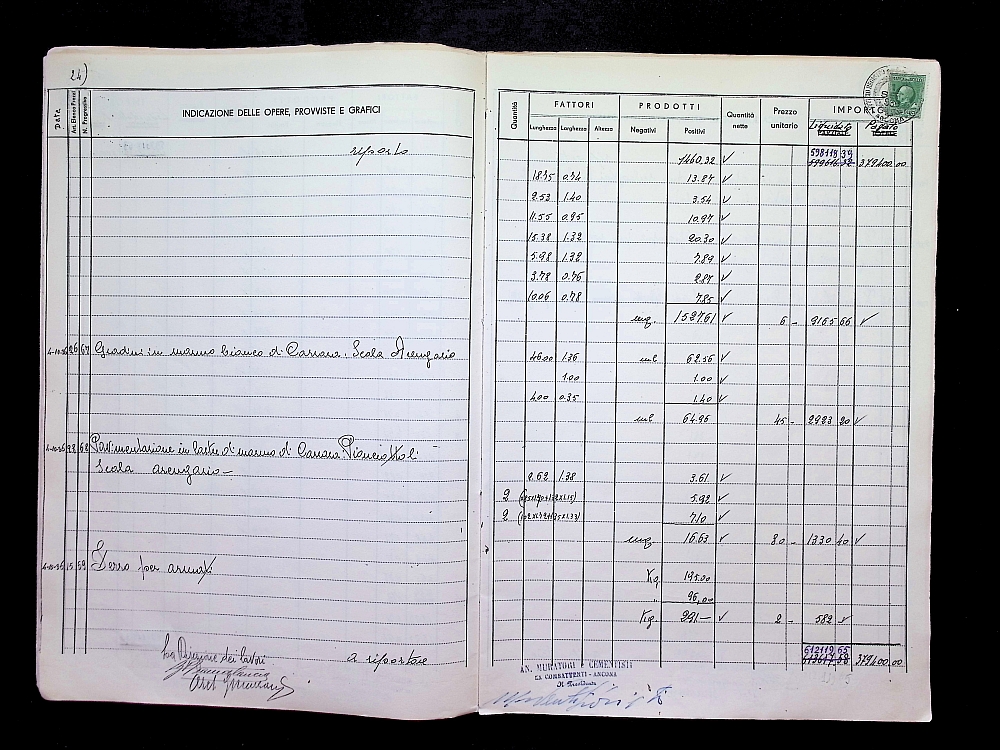 24)
Date
Art. Elenco Prezzi
N. Progressivo
INDICAZIONE DELLE OPERE, PROVVISTE E GRAFICI
Quantità
FATTORI
Lunghezza Larghezza Altezza
PRODOTTI
Negativi Positivi
Quantità nette
Prezzo unitario
IMPORTO
Liquidato Pagato
riporto 1460.32 ✓ 598118 34 379400.00
18.75 0.74 13.87 ✓
2.53 1.40 3.54 ✓
11.55 0.95 10.97 ✓
15.38 1.32 20.30 ✓
5.98 1.32 7.89 ✓
3.78 0.76 2.87 ✓
10.06 0.78 7.85 ✓
mq. 1527.61 ✓ 6 - 9165 66 ✓
4-10-36 26 67 Gradini in marmo bianco di Carrara. Scala Arengario 46.00 1.36 ml 62.56 ✓
1.00 1.00 ✓
4.00 0.35 1.40 ✓
ml 64.96 45 - 2923 20 ✓
4-10-36 28 68 Pavimentazione in lastre di marmo di Carrara.
Scala arengario — 2.62 1.38 3.61 ✓
2 5.92 ✓
2 7.10 ✓
mq. 16.63 ✓ 80 - 1330 40 ✓
4-10-36 15 69 Ferro per armat. Kg. 195.00
" 96,00
Kg. 291 — ✓ 2 - 582 ✓
La Direzione dei Lavori
a riportare 612119 65 379400.00
AN. MURATORI - CEMENTISTI
EX COMBATTENTI - ANCONA
Il Presidente